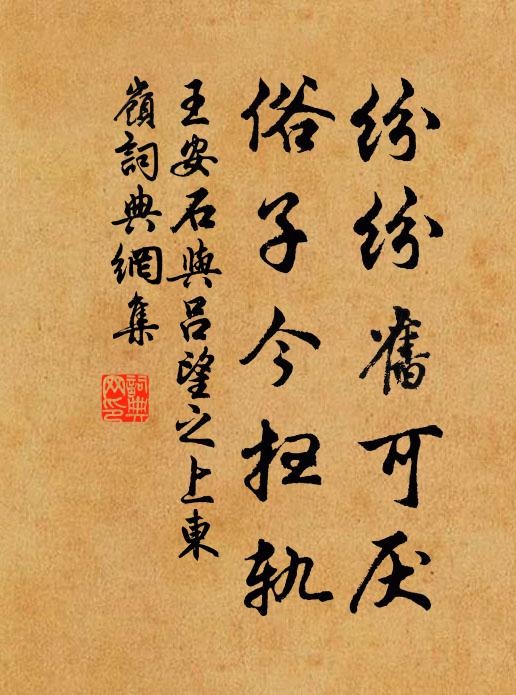 纷纷舊可厌
俗子今扫轨
王安石與吕望之上東
嶺詞典網集
詞典
网印